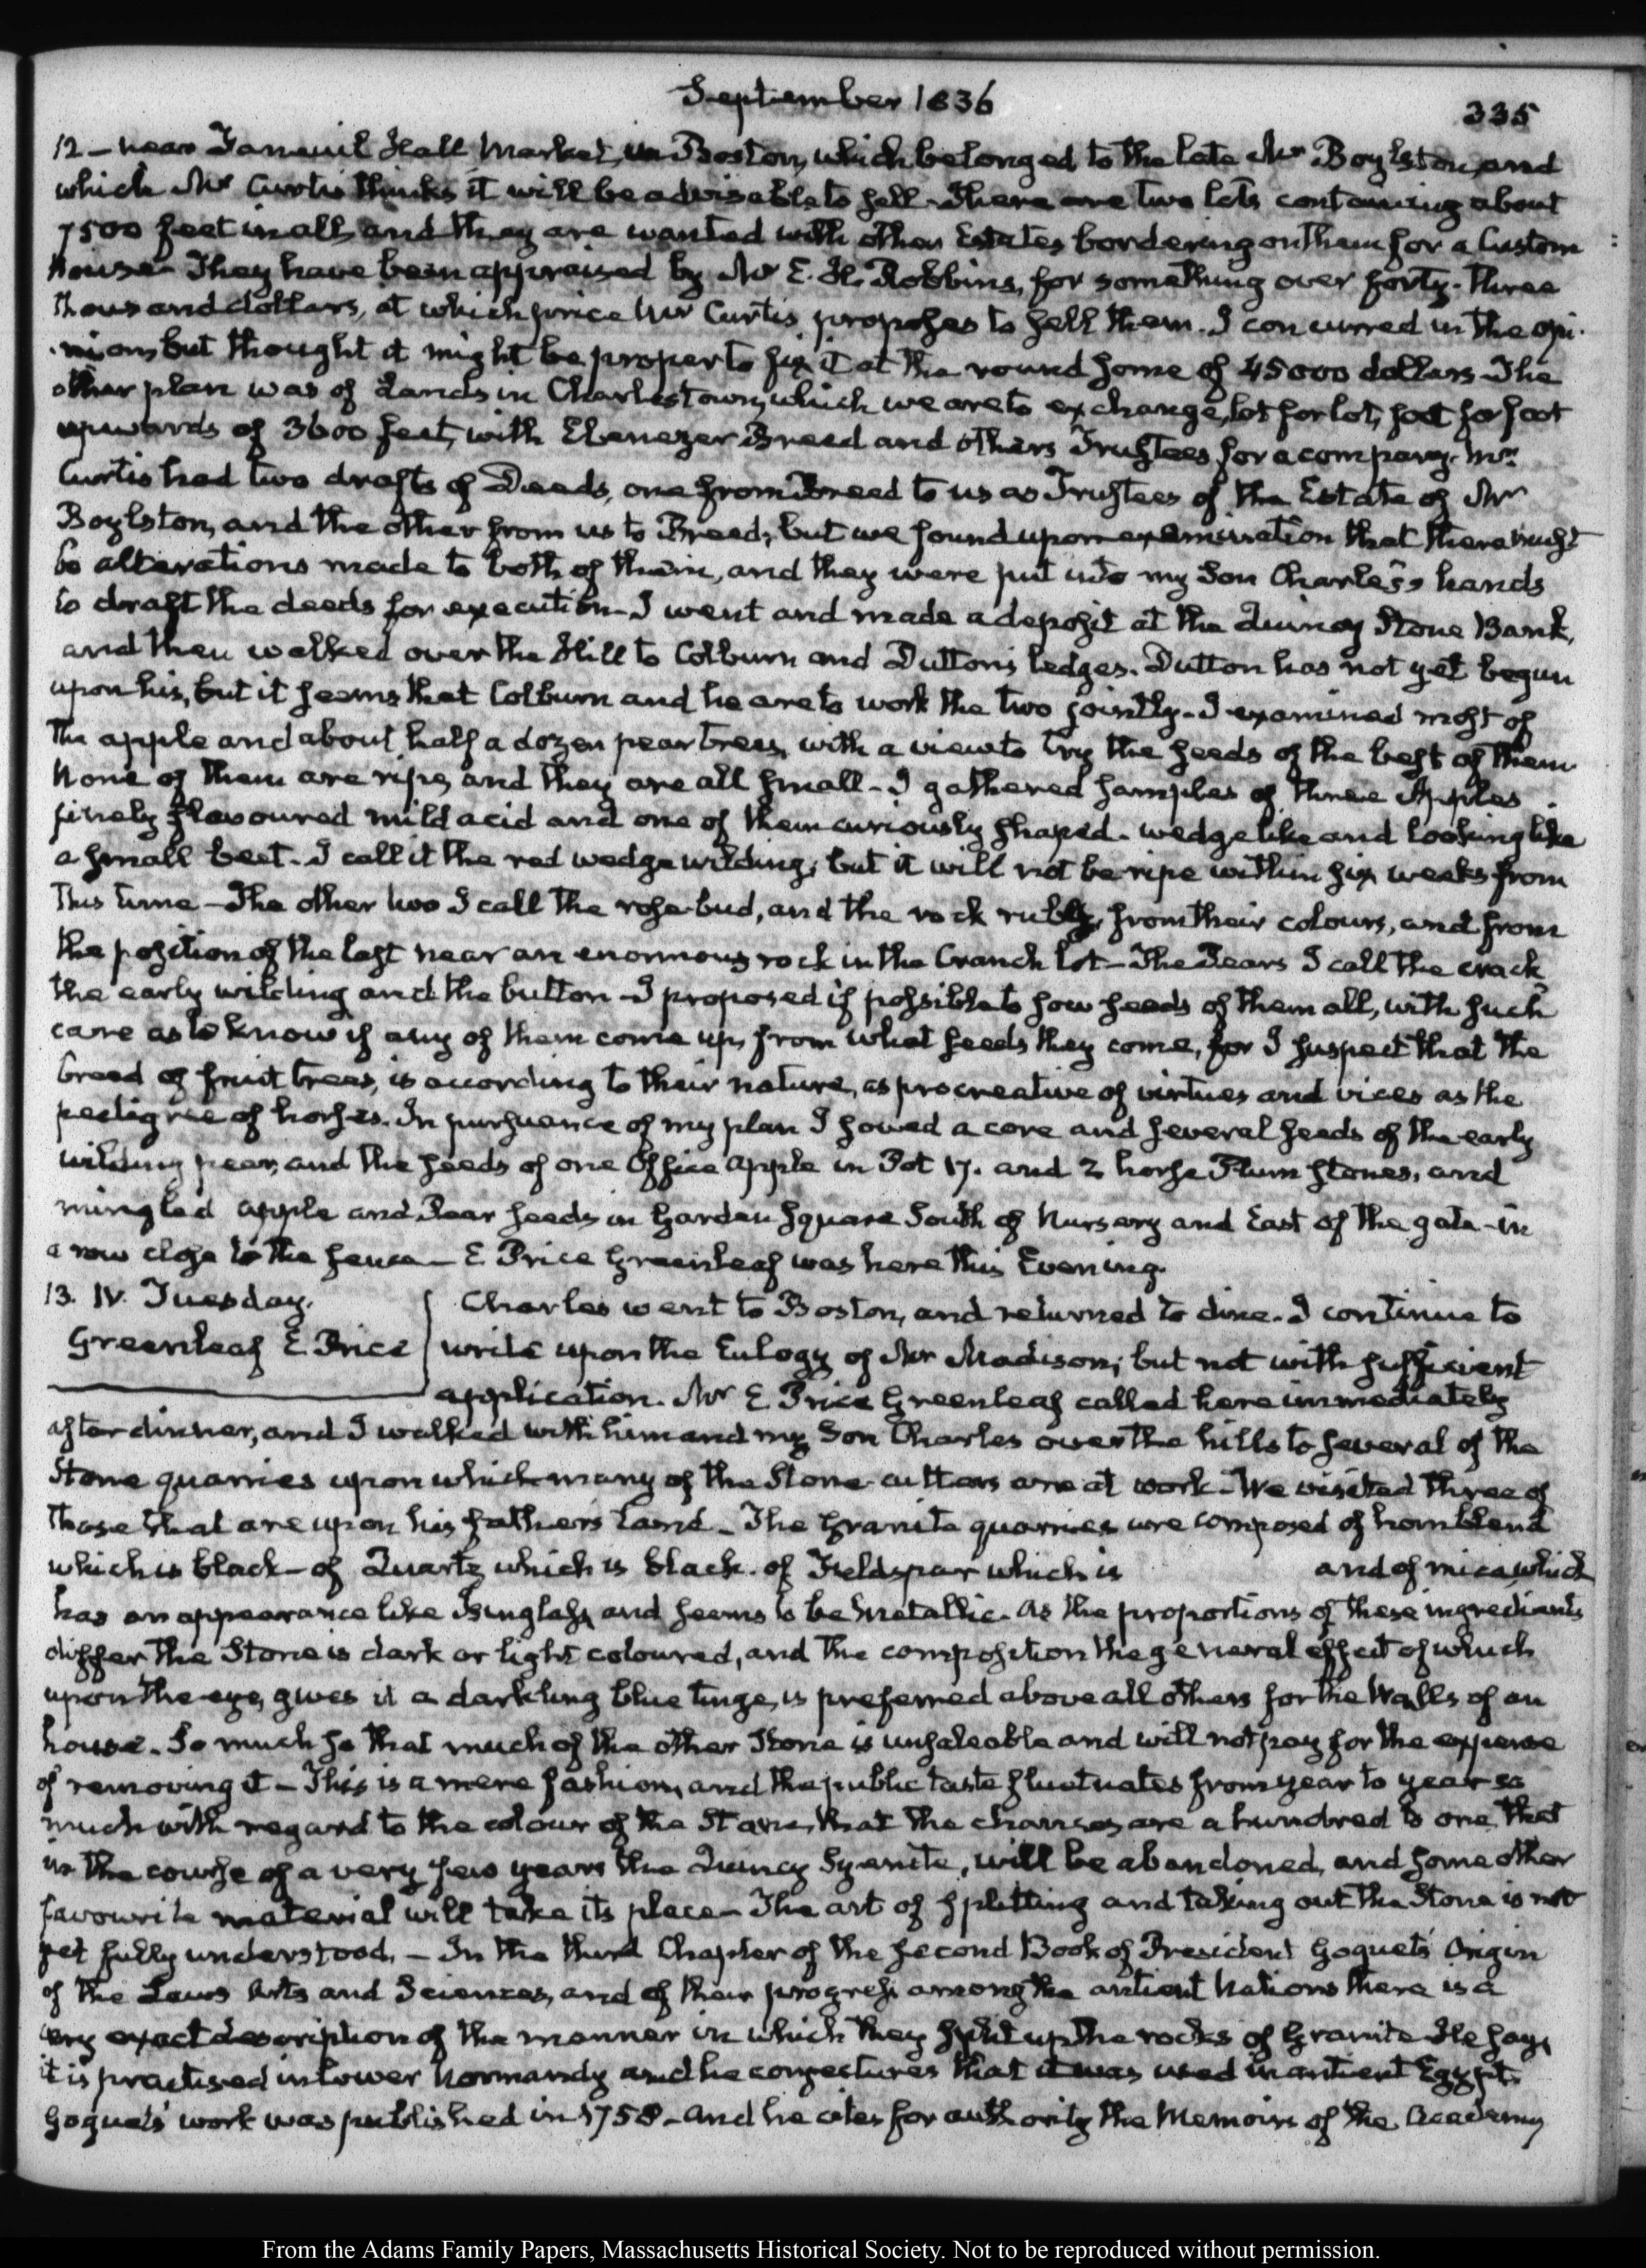 September 1836
335
12 — near Faneuil Hall Market, in Boston, which belonged to the late Mr Boylston, and
which Mr Curtis thinks it will be advisable to sell. There are two lots containing about
7500 feet in all, and they are wanted with other Estates bordering on them for a Custom
house — They have been appraised by Mr E. H. Robbins, for something over forty-three
thousand dollars, at which price Mr Curtis proposes to sell them. I concurred in the opi-
-nion, but thought it might be proper to fix it at the round some of 45000 dollars — The
other plan was of Lands in Charlestown, which we are to exchange, lot for lot, foot for foot
upwards of 3600 feet, with Ebenezer Breed and others Trustees for a company. Mr
Curtis had two drafts of Deeds, one from Breed to us as Trustees of the Estate of Mr
Boylston, and the other from us to Breed; but we found upon examination that there must
be alterations made to both of them, and they were put into my Son Charles's hands
to draft the deeds for execution — I went and made a deposit at the Quincy Stone Bank,
and then walked over the Hill to Colburn and Dutton's ledges. Dutton has not yet begun
upon his, but it seems that Colburn and he are to work the two jointly — I examined most of
the apple and about half a dozen pear trees, with a view to try the seeds of the best of them
None of them are ripe, and they are all small — I gathered samples of three Apples
finely flavoured mild acid and one of them curiously shaped — wedge like and looking like
a small beet — I call it the red wedge wilding; but it will not be ripe within six weeks from
this time — The other two I call the rose-bud, and the rock ruby, from their colours, and from
the position of the last near an enormous rock in the Cranch lot — The Pears I call the crack,
the early wilding and the button — I proposed if possible to sow seeds of them all, with such
care as to know if any of them come up, from what seeds they come, for I suspect that the
breed of fruit trees, is according to their nature, as procreative of virtues and vices as the
pedigree of horses. In pursuance of my plan I sowed a core and several seeds of the early
wilding pear, and the seeds of one Office apple in Pot 17. and 2 horse Plum stones, and
mingled apple and Pear seeds in Garden square South of Nursery and East of the gate — in
a row close to the fence — E Price Greenleaf was here this Evening.
13. IV. Tuesday.
Greenleaf E. Price
Charles went to Boston, and returned to dine. I continue to
write upon the Eulogy of Mr Madison; but not with sufficient
application. Mr E Price Greenleaf called here immediately
after dinner, and I walked with him and my Son Charles over the hills to several of the
Stone quarries upon which many of the Stone-cutters are at work — We visited three of
those that are upon his father's Land — The Granite quarries are composed of hornblend
which is black — of Quartz which is black. of Feldspar which is and of mica, which
has an appearance like Isinglass, and seems to be metallic. As the proportions of these ingredients
differ the Stone is dark or light coloured, and the composition the general effect of which
upon the eye, gives it a darkling blue tinge, is preferred above all others for the Walls of an
house. So much so that much of the other Stone is unsaleable and will not pay for the expense
of removing it — This is a mere fashion, and the public taste fluctuates from year to year so
much with regard to the colour of the Stone, that the chances are a hundred to one, that
in the course of a very few years the Quincy Syenite, will be abandoned, and some other
favourite material will take its place — The art of splitting and taking out the Stone is not
yet fully understood. — In the third Chapter of the second Book of President Goguet's Origin
of the Laws Arts and Sciences, and of their progress among the antient Nations there is a
very exact description of the manner in which they split up the rocks of Granite — He says
it is practised in lower Normandy and he conjectures that it was used in antient Egypt.
Goguet's work was published in 1758 — and he cites for authority the Memoirs of the Academy
From the Adams Family Papers, Massachusetts Historical Society. Not to be reproduced without permission.